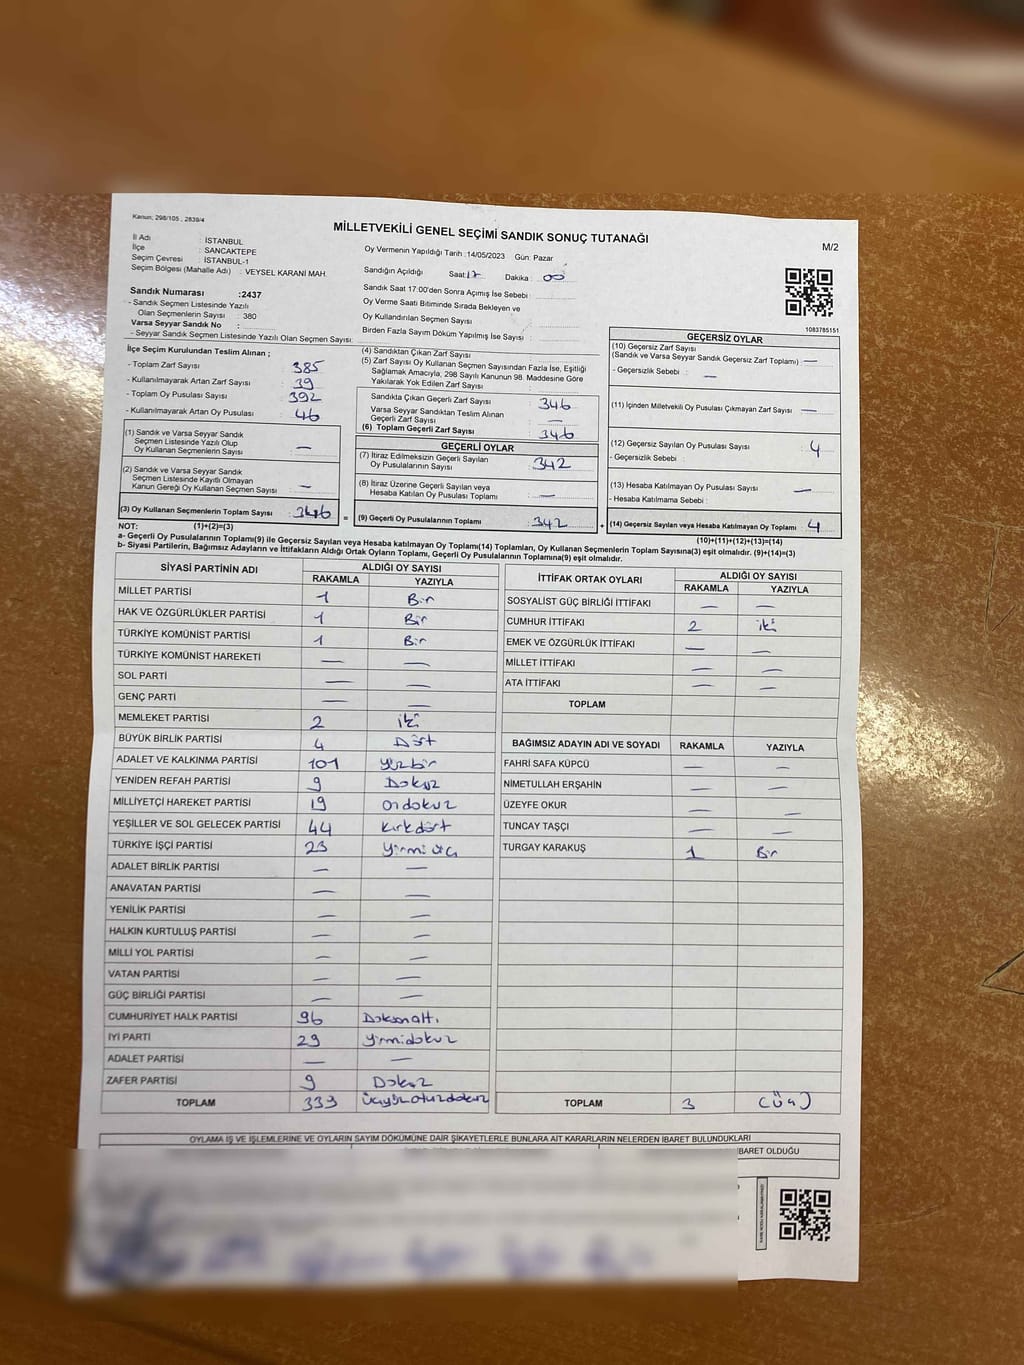 Kanun; 298/105 ; 2839/4
MİLLETVEKİLİ GENEL SEÇİMİ SANDIK SONUÇ TUTANAĞI
M/2
İl Adı : İSTANBUL
İlçe : SANCAKTEPE
Seçim Çevresi : İSTANBUL-1
Seçim Bölgesi (Mahalle Adı) : VEYSEL KARANİ MAH.
Oy Vermenin Yapıldığı Tarih :14/05/2023 Gün: Pazar
Sandığın Açıldığı Saat:17 Dakika : 00
Sandık Saat 17:00'den Sonra Açımış İse Sebebi :
Oy Verme Saati Bitiminde Sırada Bekleyen ve
Oy Kullandırılan Seçmen Sayısı :
Birden Fazla Sayım Döküm Yapılmış İse Sayısı :
1083785151
Sandık Numarası :2437
- Sandık Seçmen Listesinde Yazılı
Olan Seçmenlerin Sayısı : 380
Varsa Seyyar Sandık No :
- Seyyar Sandık Seçmen Listesinde Yazılı Olan Seçmen Sayısı:
İlçe Seçim Kurulundan Teslim Alınan ;
- Toplam Zarf Sayısı : 385
- Kullanılmayarak Artan Zarf Sayısı : 39
- Toplam Oy Pusulası Sayısı : 392
- Kullanılmayarak Artan Oy Pusulası : 46
(1) Sandık ve Varsa Seyyar Sandık
Seçmen Listesinde Yazılı Olup
Oy Kullanan Seçmenlerin Sayısı : —
(2) Sandık ve Varsa Seyyar Sandık
Seçmen Listesinde Kayıtlı Olmayan
Kanun Gereği Oy Kullanan Seçmen Sayısı : —
(3) Oy Kullanan Seçmenlerin Toplam Sayısı : 346
(4) Sandıktan Çıkan Zarf Sayısı :
(5) Zarf Sayısı Oy Kullanan Seçmen Sayısından Fazla İse, Eşitliği
Sağlamak Amacıyla, 298 Sayılı Kanunun 98. Maddesine Göre
Yakılarak Yok Edilen Zarf Sayısı :
Sandıkta Çıkan Geçerli Zarf Sayısı : 346
Varsa Seyyar Sandıktan Teslim Alınan
Geçerli Zarf Sayısı : —
(6) Toplam Geçerli Zarf Sayısı : 346
GEÇERLİ OYLAR
(7) İtiraz Edilmeksizin Geçerli Sayılan
Oy Pusulalarının Sayısı : 342
(8) İtiraz Üzerine Geçerli Sayılan veya
Hesaba Katılan Oy Pusulası Toplamı : —
= (9) Geçerli Oy Pusulalarının Toplamı : 342
GEÇERSİZ OYLAR
(10) Geçersiz Zarf Sayısı
(Sandık ve Varsa Seyyar Sandık Geçersiz Zarf Toplamı) : —
- Geçersizlik Sebebi : —
(11) İçinden Milletvekili Oy Pusulası Çıkmayan Zarf Sayısı : —
(12) Geçersiz Sayılan Oy Pusulası Sayısı : 4
- Geçersizlik Sebebi :
(13) Hesaba Katılmayan Oy Pusulası Sayısı : —
- Hesaba Katılmama Sebebi :
+ (14) Geçersiz Sayılan veya Hesaba Katılmayan Oy Toplamı : 4
NOT: (1)+(2)=(3)
(10)+(11)+(12)+(13)=(14)
a- Geçerli Oy Pusulalarının Toplamı(9) ile Geçersiz Sayılan veya Hesaba katılmayan Oy Toplamı(14) Toplamları, Oy Kullanan Seçmenlerin Toplam Sayısına(3) eşit olmalıdır. (9)+(14)=(3)
b- Siyasi Partilerin, Bağımsız Adayların ve İttifakların Aldığı Ortak Oyların Toplamı, Geçerli Oy Pusulalarının Toplamına(9) eşit olmalıdır.
SİYASİ PARTİNİN ADI ALDIĞI OY SAYISI
RAKAMLA YAZIYLA
MİLLET PARTİSİ 1 Bir
HAK VE ÖZGÜRLÜKLER PARTİSİ 1 Bir
TÜRKİYE KOMÜNİST PARTİSİ 1 Bir
TÜRKİYE KOMÜNİST HAREKETİ — —
SOL PARTİ — —
GENÇ PARTİ — —
MEMLEKET PARTİSİ 2 iki
BÜYÜK BİRLİK PARTİSİ 4 Dört
ADALET VE KALKINMA PARTİSİ 101 yüzbir
YENİDEN REFAH PARTİSİ 9 Dokuz
MİLLİYETÇİ HAREKET PARTİSİ 19 ondokuz
YEŞİLLER VE SOL GELECEK PARTİSİ 44 kırkdört
TÜRKİYE İŞÇİ PARTİSİ 23 yirmi üç
ADALET BİRLİK PARTİSİ — —
ANAVATAN PARTİSİ — —
YENİLİK PARTİSİ — —
HALKIN KURTULUŞ PARTİSİ — —
MİLLİ YOL PARTİSİ — —
VATAN PARTİSİ — —
GÜÇ BİRLİĞİ PARTİSİ — —
CUMHURİYET HALK PARTİSİ 96 Doksanaltı
İYİ PARTİ 29 yirmidokuz
ADALET PARTİSİ — —
ZAFER PARTİSİ 9 Dokuz
TOPLAM 339 üçyüzotuzdokuz
İTTİFAK ORTAK OYLARI ALDIĞI OY SAYISI
RAKAMLA YAZIYLA
SOSYALİST GÜÇ BİRLİĞİ İTTİFAKI — —
CUMHUR İTTİFAKI 2 iki
EMEK VE ÖZGÜRLÜK İTTİFAKI — —
MİLLET İTTİFAKI — —
ATA İTTİFAKI — —
TOPLAM
BAĞIMSIZ ADAYIN ADI VE SOYADI RAKAMLA YAZIYLA
FAHRİ SAFA KÜPCÜ — —
NİMETULLAH ERŞAHİN — —
ÜZEYFE OKUR — —
TUNCAY TAŞÇI — —
TURGAY KARAKUŞ 1 Bir
TOPLAM 3 (Üç)
OYLAMA İŞ VE İŞLEMLERİNE VE OYLARIN SAYIM DÖKÜMÜNE DAİR ŞİKAYETLERLE BUNLARA AİT KARARLARIN NELERDEN İBARET BULUNDUKLARI
İBARET OLDUĞU